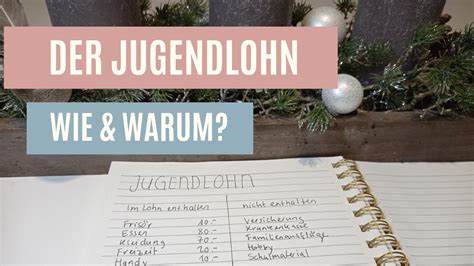 DER JUGENDLOHN
WIE & WARUM?
JUGENDLOHN
Im Lohn enthalten nicht enthalten
Frisör 10.- Versicherung
Essen 80.- Krankenkasse
Kleidung 70.- Familienausflüge
Freizeit 20.- Hobby
Handy 10.- Schulmaterial